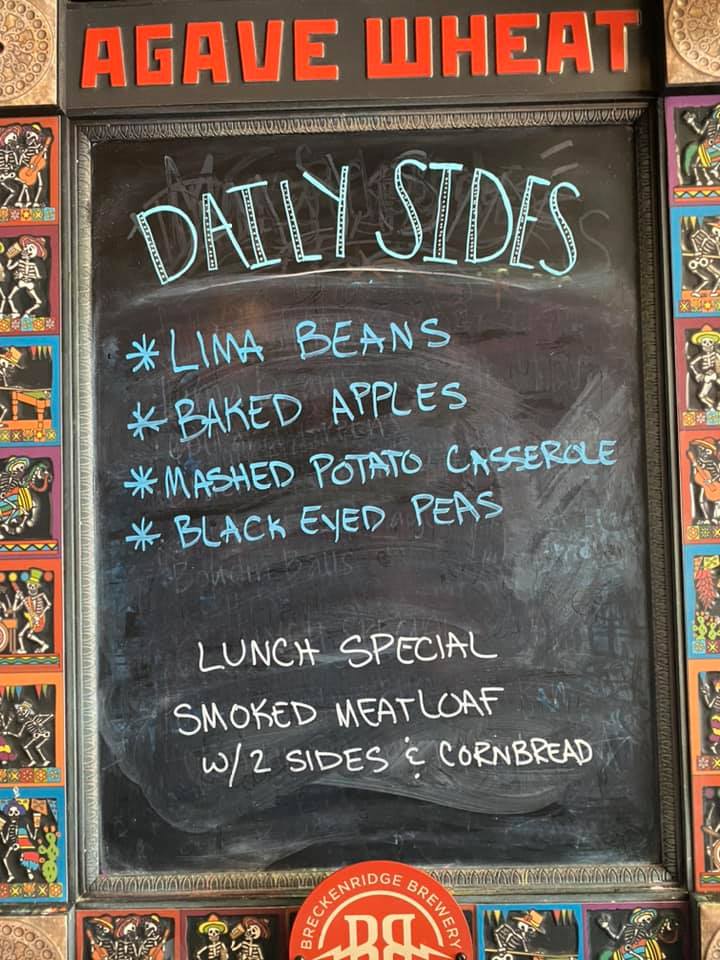 AGAVE WHEAT
DAILY SIDES
* LIMA BEANS
* BAKED APPLES
* MASHED POTATO CASSEROLE
* BLACK EYED PEAS
Boudin balls
LUNCH SPECIAL
SMOKED MEATLOAF
W/2 SIDES & CORNBREAD
BRECKENRIDGE BREWERY
BB